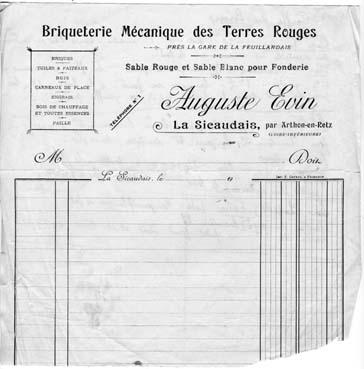 Briqueterie Mécanique des Terres Rouges
PRÈS LA GARE DE LA FEUILLARDAIS
BRIQUES
TUILES & FAITEAUX
BUIS
CARREAUX DE PLACE
ENGRAIS
BOIS DE CHAUFFAGE
ET TOUTES ESSENCES
PAILLE
Sable Rouge et Sable Blanc pour Fonderie
TÉLÉPHONE N° 1
Auguste Evin
La Sicaudais, par Arthon-en-Retz
(LOIRE-INFÉRIEURE)
M Doit
La Sicaudais, le 19